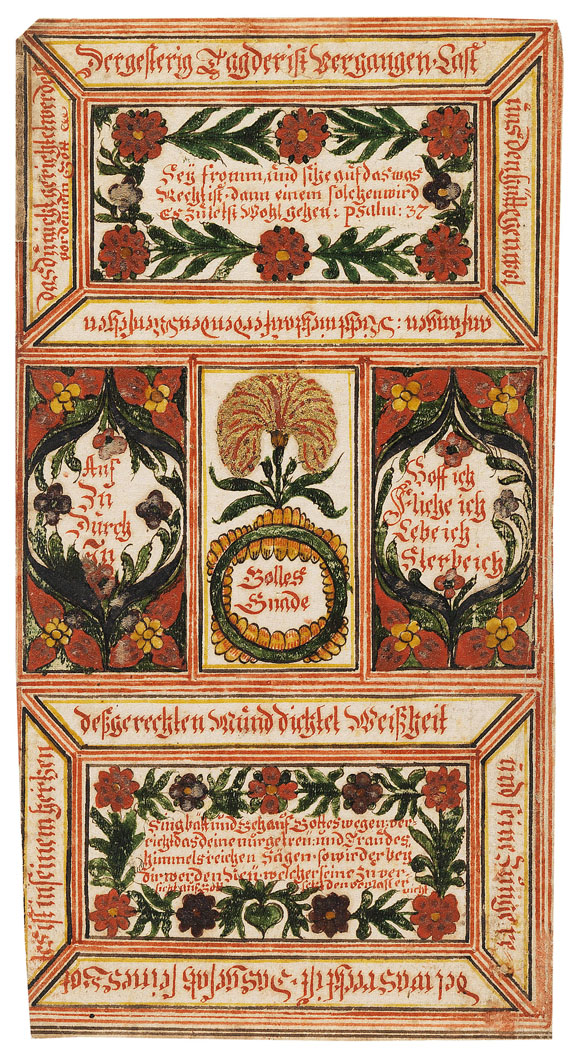 Der gesterig Tag der ist Vergangen. Last
üns den hüttigen wol
anfangen: Nicht mich unter den den Menschen
das du nicht gerichtet werdest
vor deinem Gott
Sey fromm, und halte auf das was
Recht ist, dann einem solchen wird
Es zuletst Wohl gehen: Psalm: 37
Auf
Zu
Durch
In
Gottes
Gnade
Hoff ich
Fliehe ich
Lebe ich
Sterbe ich
deß gerechten Mund dichtet Weißheit
und seine Zunge re
det was recht ist. Das gesatz seines Got
tes ist in seinem hertzen
Sing bätt und Geh auf Gottes wegen: ver
richt das deine nur getreu: und Trau des
himmels reichen Sägen: so wird er bey
dir werden Neu. welcher seine Zuver
sicht auf Gott setzt den verläst er
nicht